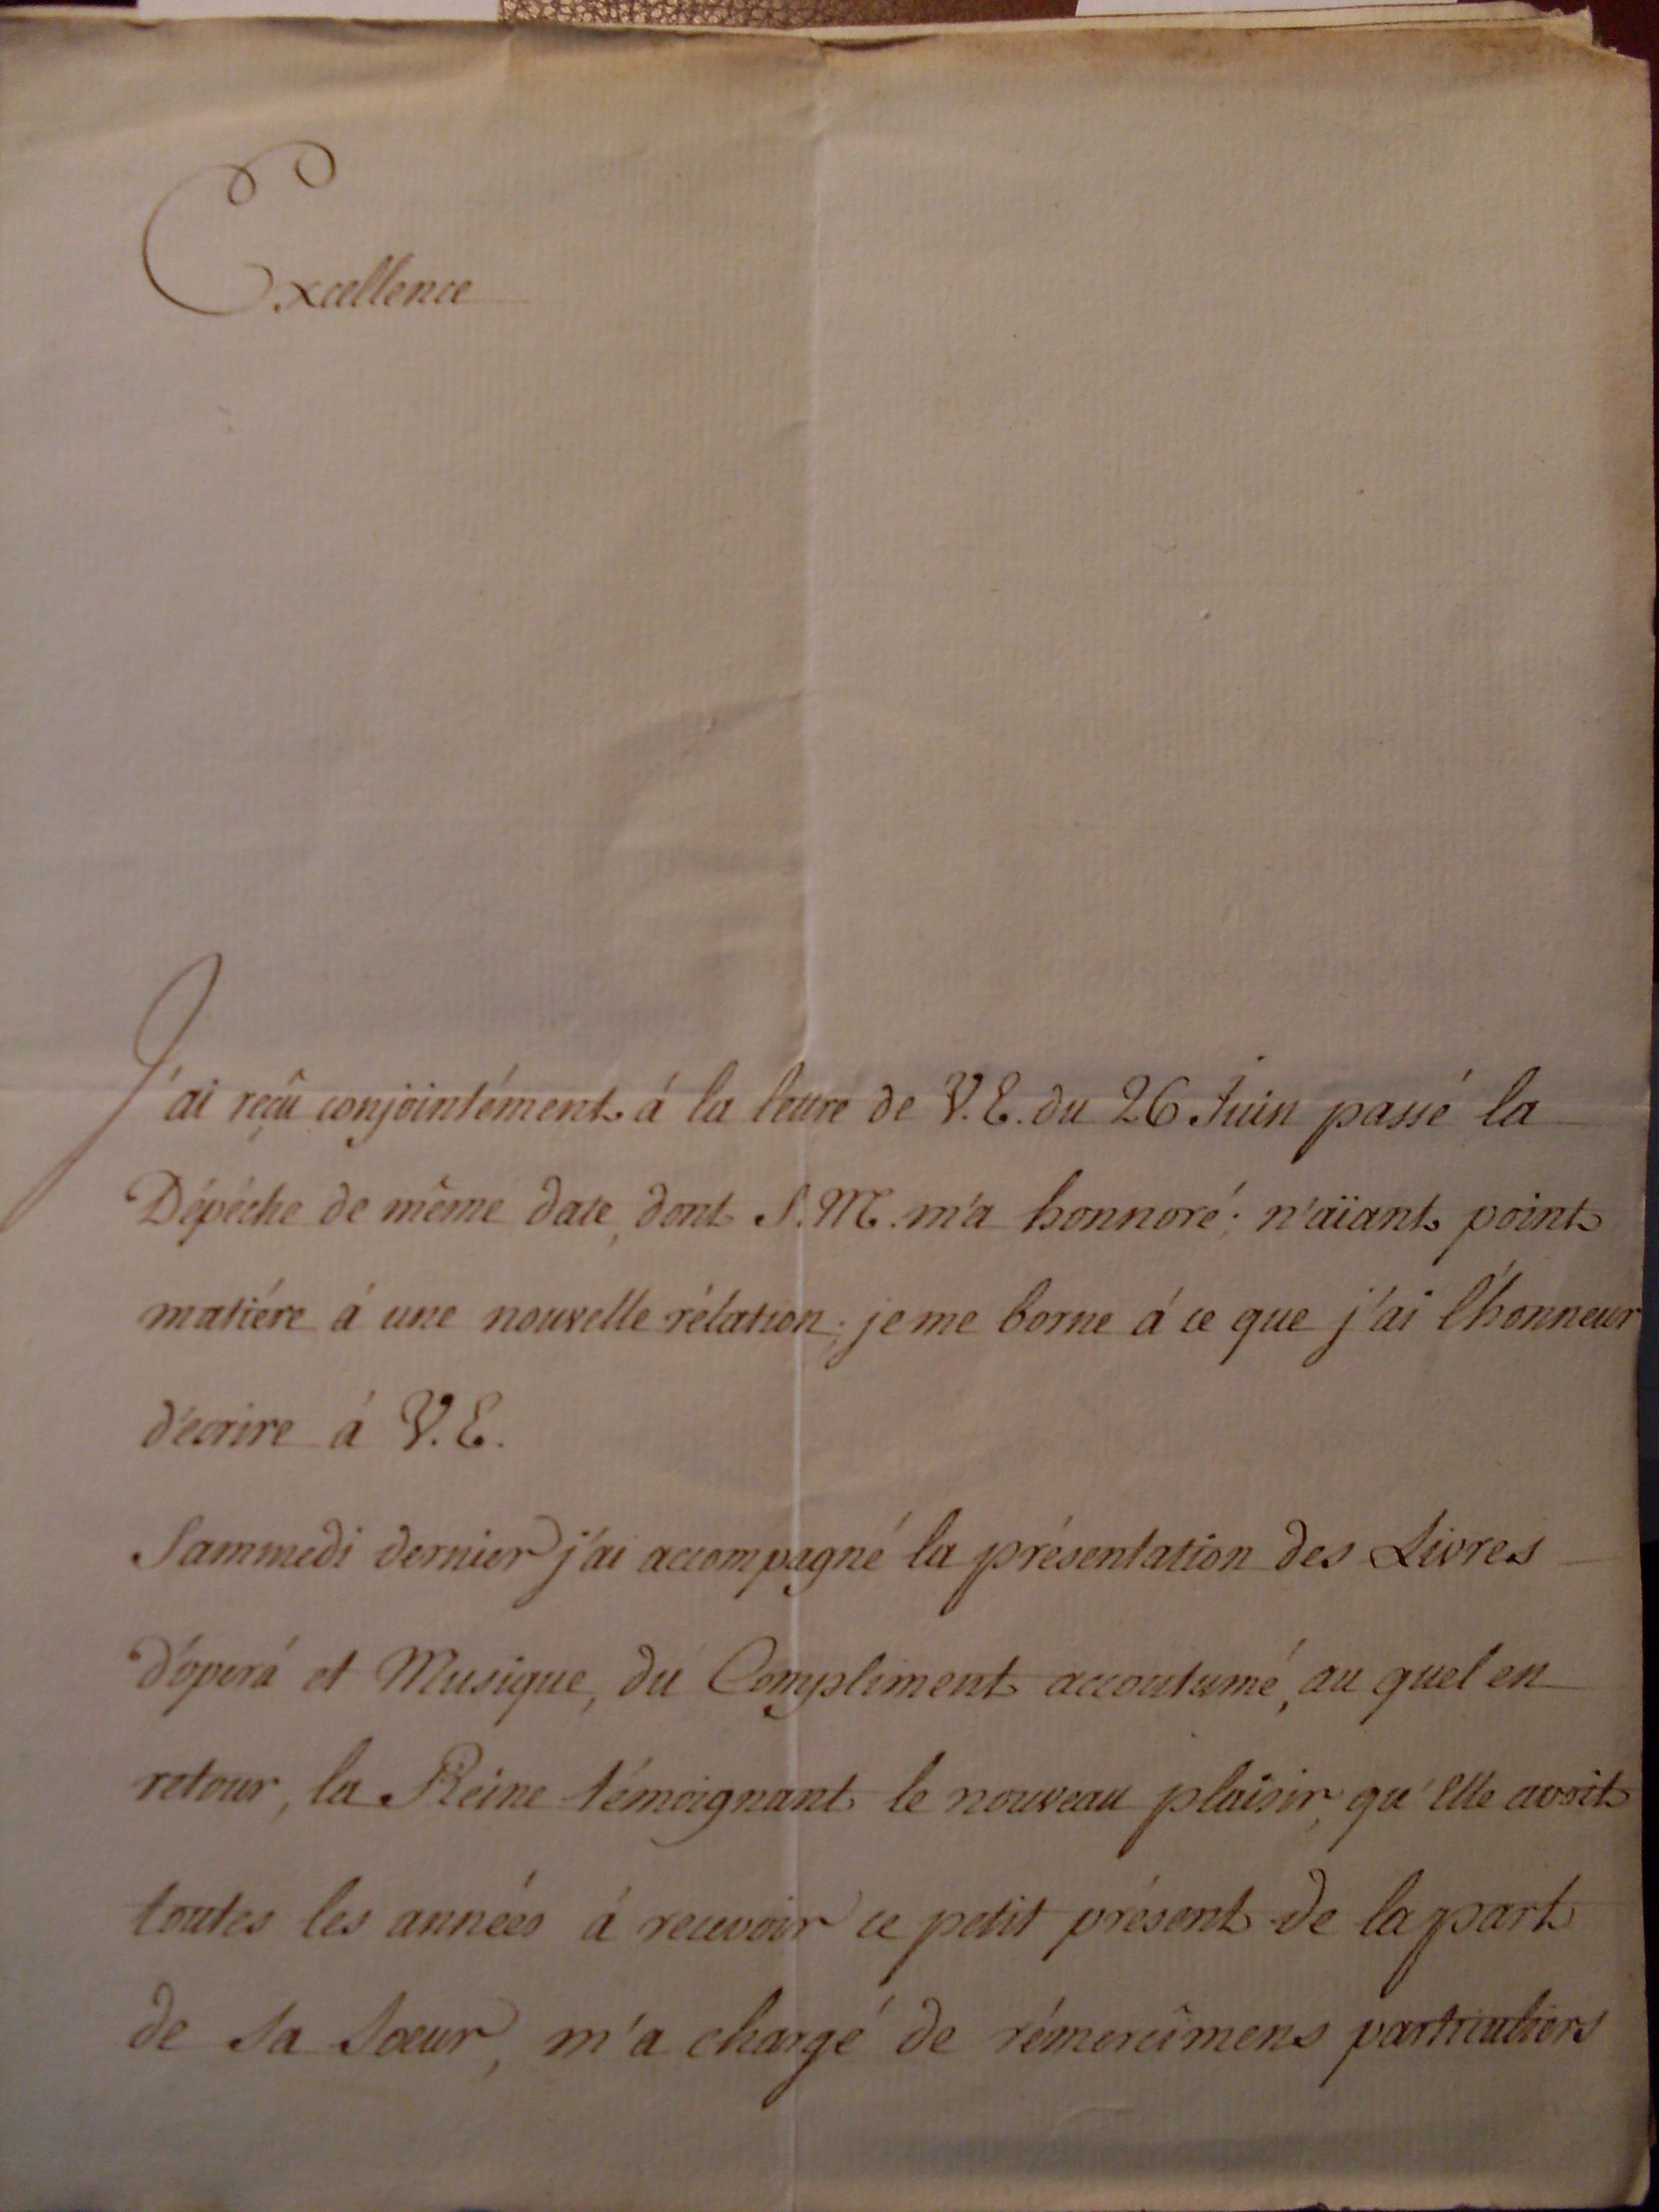 Excellence
J'ai reçû conjointément á la lettre de V.E. du 26 Juin passé la
Dépéche de même date, dont S.M. m'a honnoré; n'aïant point
matiére á une nouvelle rélation; je me borne á ce que j'ai l'honneur
d'ecrire á V.E.
Sammedi dernier j'ai accompagné la présentation des Livres
d'operá et Musique, du Compliment accoutumé, au quel en
retour, la Reine témoignant le nouveau plaisir, qu'Elle avoit
toutes les années á recevoir ce petit présent de la part
de Sa Soeur, m'a chargé de rémercîmens particuliers